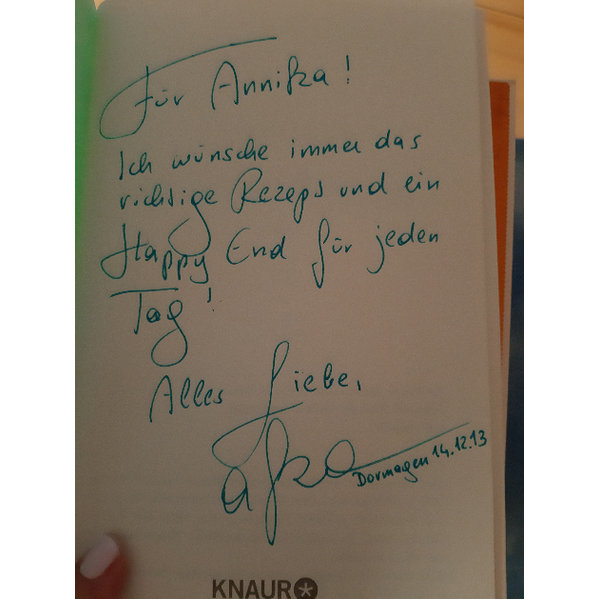 Für Annika!
Ich wünsche immer das
richtige Rezept und ein
Happy End für jeden
Tag!
Alles Liebe,
Dormagen 14.12.13
KNAUR